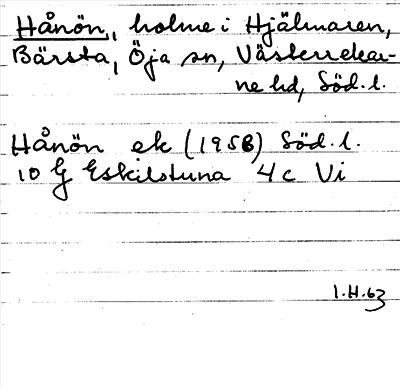 Hånön, holme i Hjälmaren,
Bärsta, Öja sn, Västerrekar-
ne hd, Söd. l.
Hånön ek (1958) Söd. l.
10 G Eskilstuna 4 c Vi
1.H.63